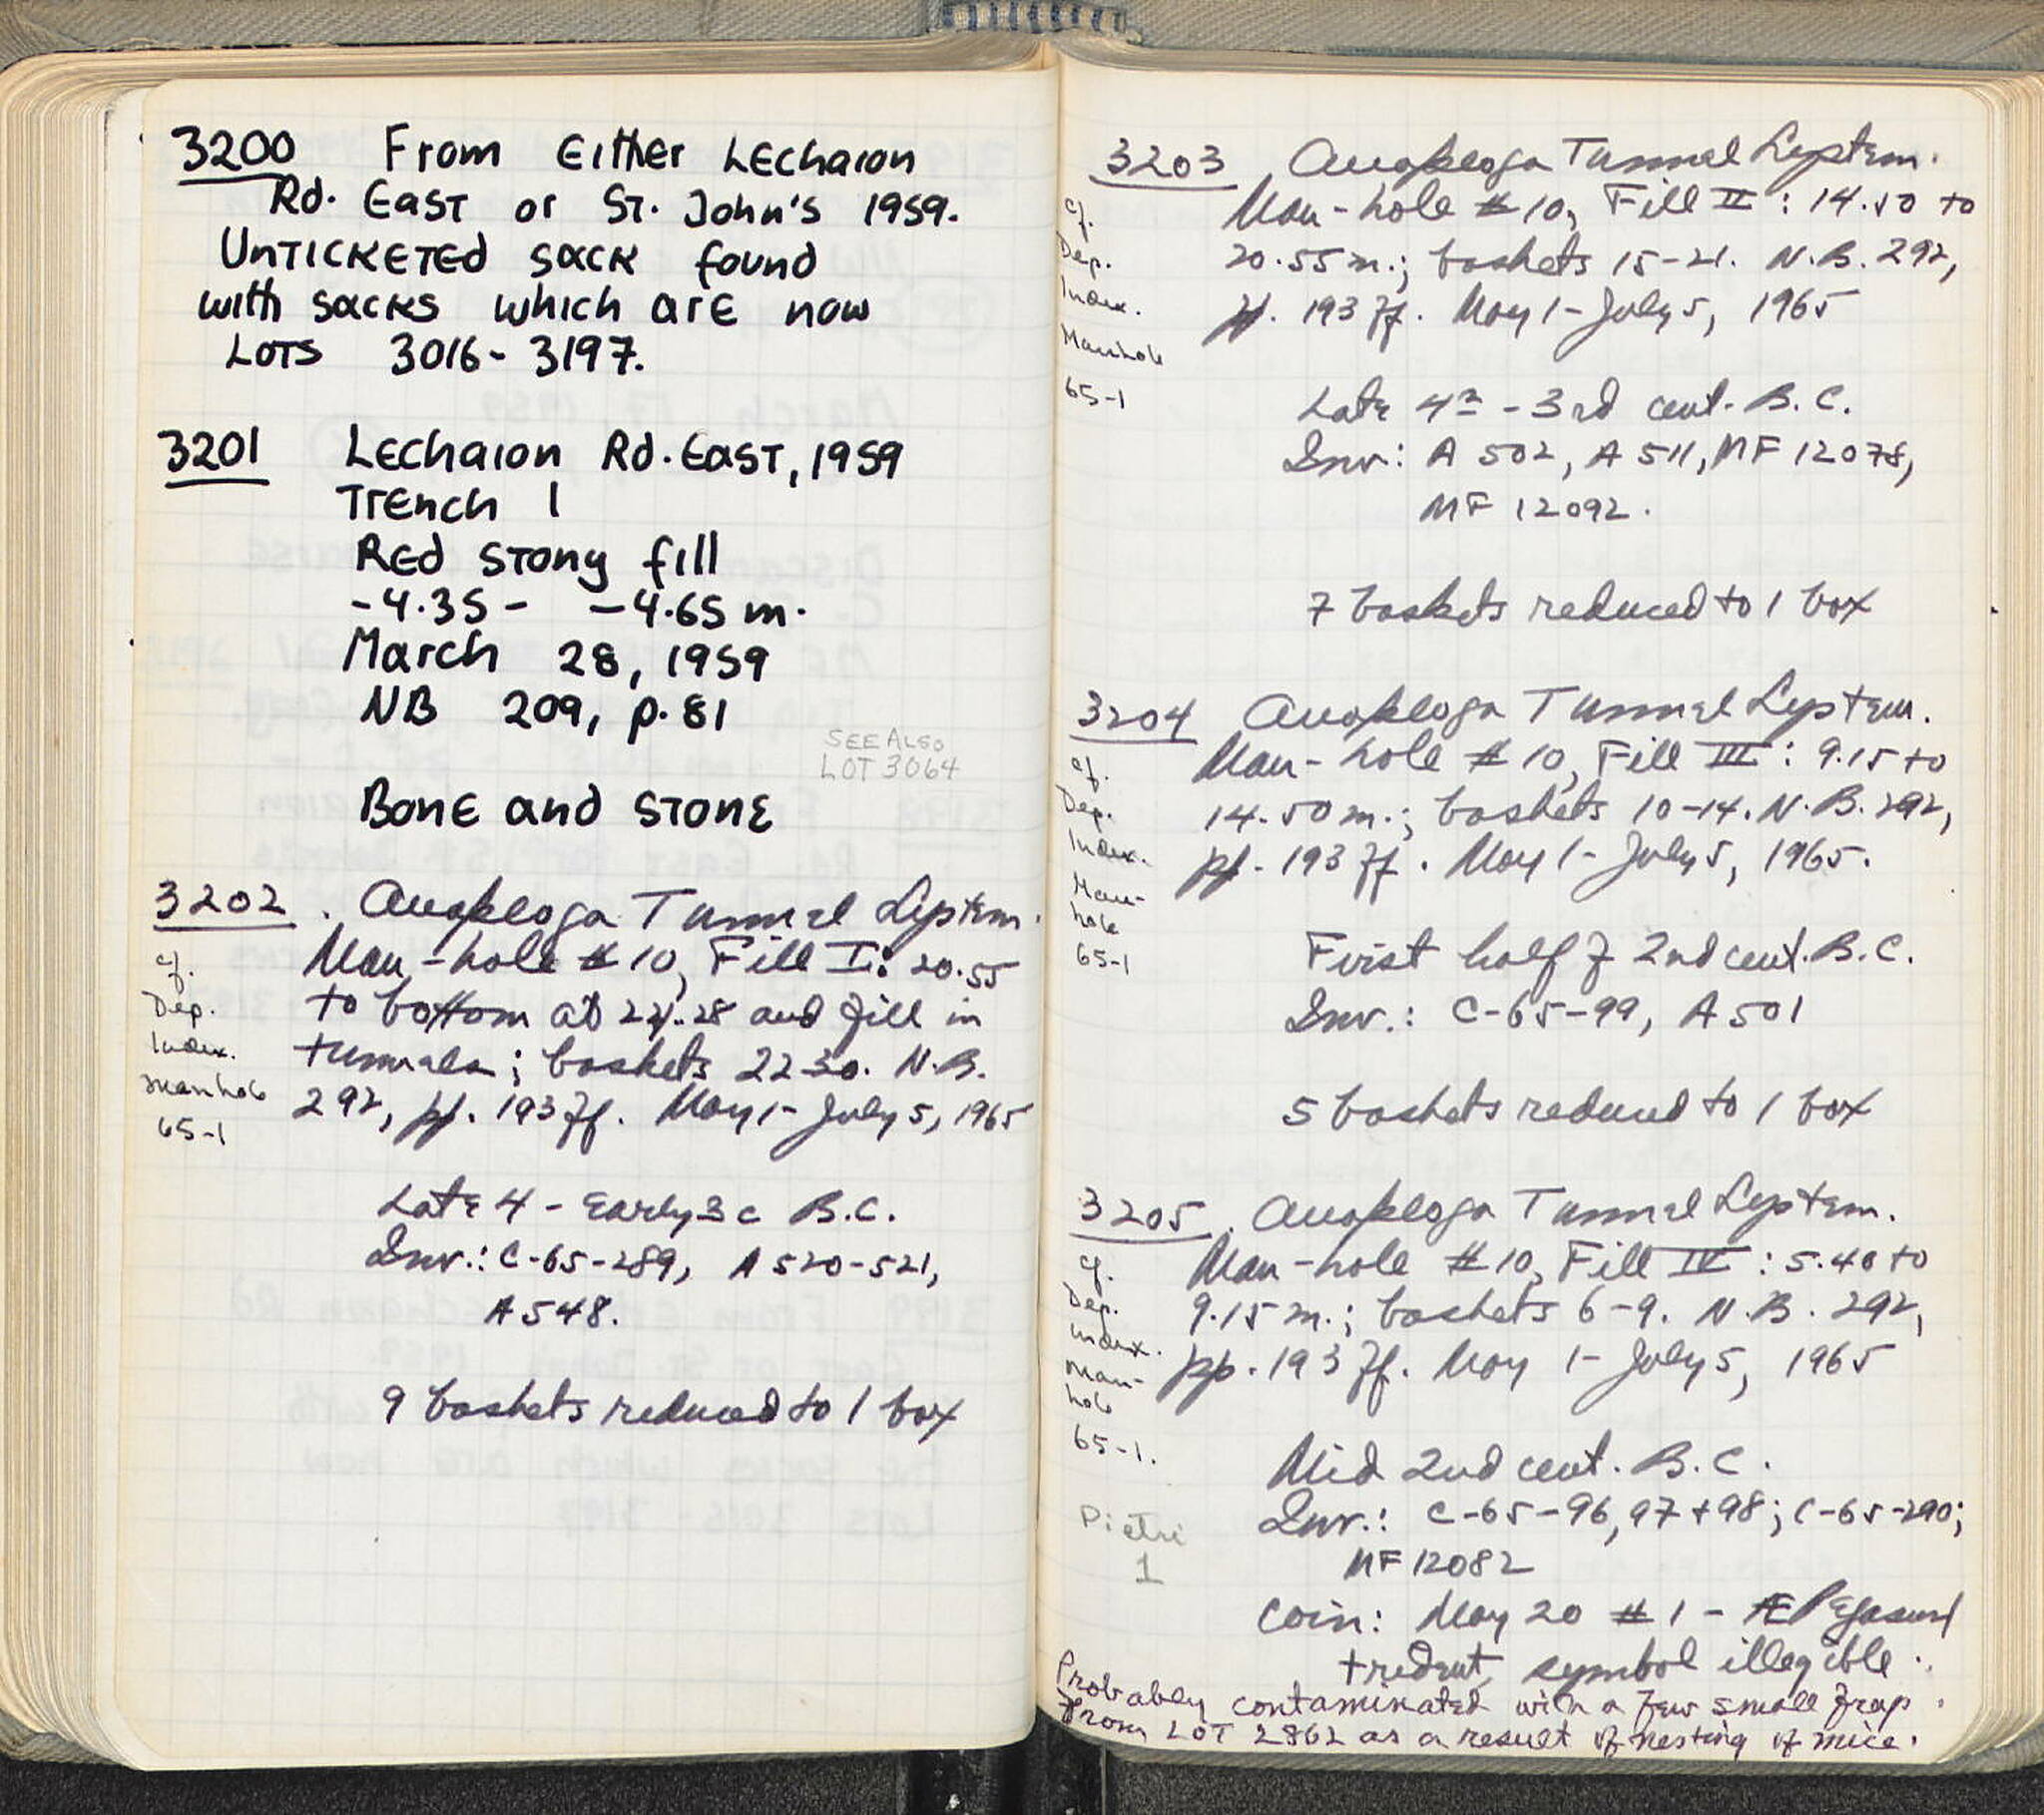 3200 From Either Lechaion
Rd. East or St. John's 1959.
Unticketed sack found
with sacks which are now
Lots 3016-3197.
3201 Lechaion Rd. East, 1959
Trench 1
Red stony fill
-4.35 - -4.65 m.
March 28, 1959
NB 209, p. 81
SEE ALSO
LOT 3064
Bone and stone
3202. Anaploga Tunnel System.
Man-hole #10, Fill I: 20.55
to bottom at 22.28 and fill in
tunnels; baskets 22-30. N.B.
292, pp. 193 ff. May 1 - July 5, 1965
cf.
Dep.
Index.
Manhole
65-1
Late 4 - Early 3 c B.C.
Inv.: C-65-289, A 520-521,
A 548.
9 baskets reduced to 1 box
3203. Anaploga Tunnel System.
Man-hole #10, Fill II: 14.50 to
20.55 m.; baskets 15-21. N.B. 292,
pp. 193 ff. May 1 - July 5, 1965
cf.
Dep.
Index.
Manhole
65-1
Late 4th - 3rd cent. B.C.
Inv: A 502, A 511, MF 12078,
MF 12092.
7 baskets reduced to 1 box
3204 Anaploga Tunnel System.
Man-hole #10, Fill III: 9.15 to
14.50 m.; baskets 10-14. N.B. 292,
pp. 193 ff. May 1 - July 5, 1965.
cf.
Dep.
Index.
Man-
hole
65-1
First half of 2nd cent. B.C.
Inv.: C-65-99, A 501
5 baskets reduced to 1 box
3205. Anaploga Tunnel System.
Man-hole #10, Fill IV: 5.40 to
9.15 m.; baskets 6-9. N.B. 292,
pp. 193 ff. May 1 - July 5, 1965
cf.
Dep.
index.
Man-
hole
65-1.
Mid 2nd cent. B.C.
Inv.: C-65-96, 97 + 98; C-65-290;
MF 12082
Pietri
1
Coin: May 20 #1 - Æ Pegasus/
trident, symbol illegible.
Probably contaminated with a few small frag.
from LOT 2862 as a result of nesting of mice.